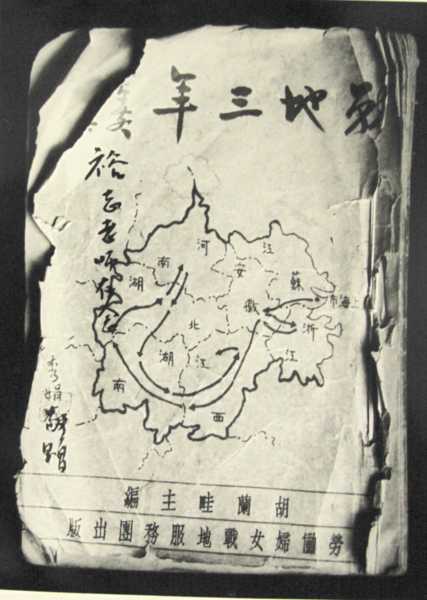 戰地三年
裕志老師
河南
江蘇
安徽
上海市
湖北
浙江
湖南
江西
贈
胡蘭畦主編
勞働婦女戰地服務團出版